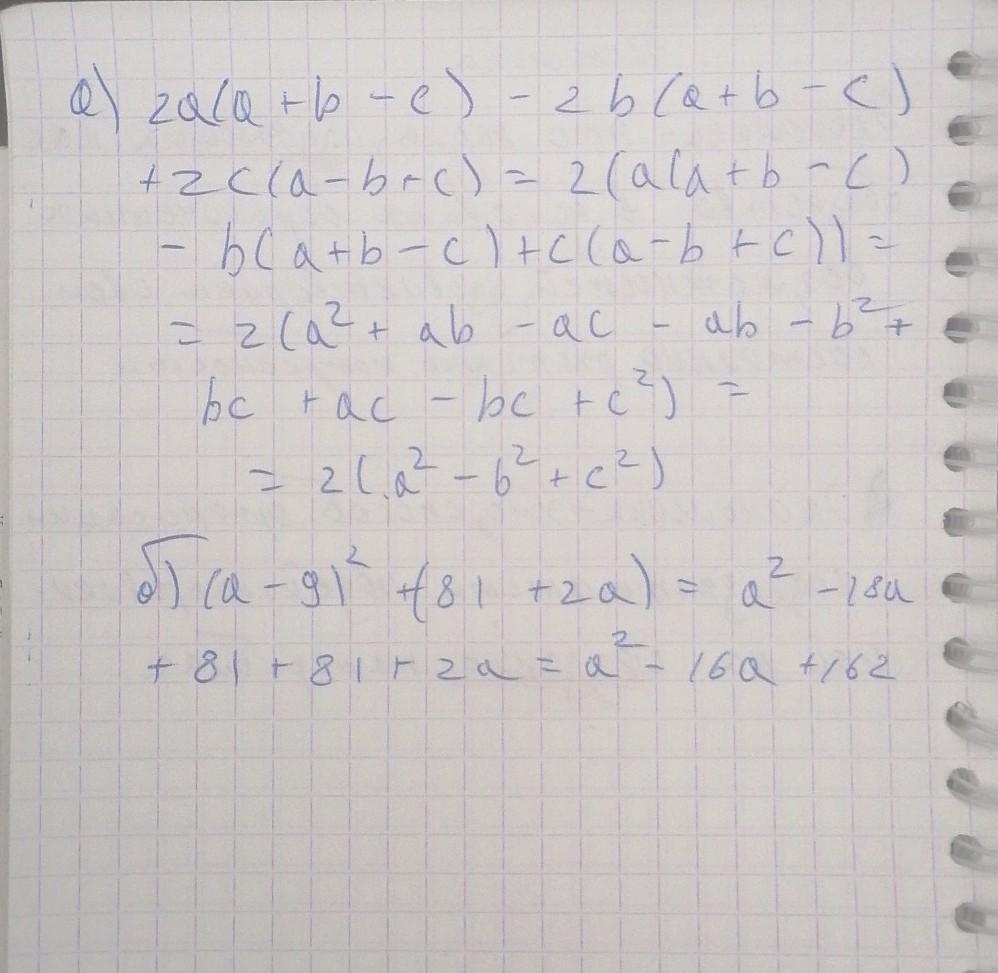 а) 2a(a + b - c) - 2b(a + b - c)
+2c(a - b + c) = 2(a(a + b - c)
- b(a + b - c) + c(a - b + c)) =
= 2(a² + ab - ac - ab - b² +
bc + ac - bc + c²) =
= 2(a² - b² + c²)
б) (a - 9)² + (81 + 2a) = a² - 18a
+ 81 + 81 + 2a = a² - 16a + 162